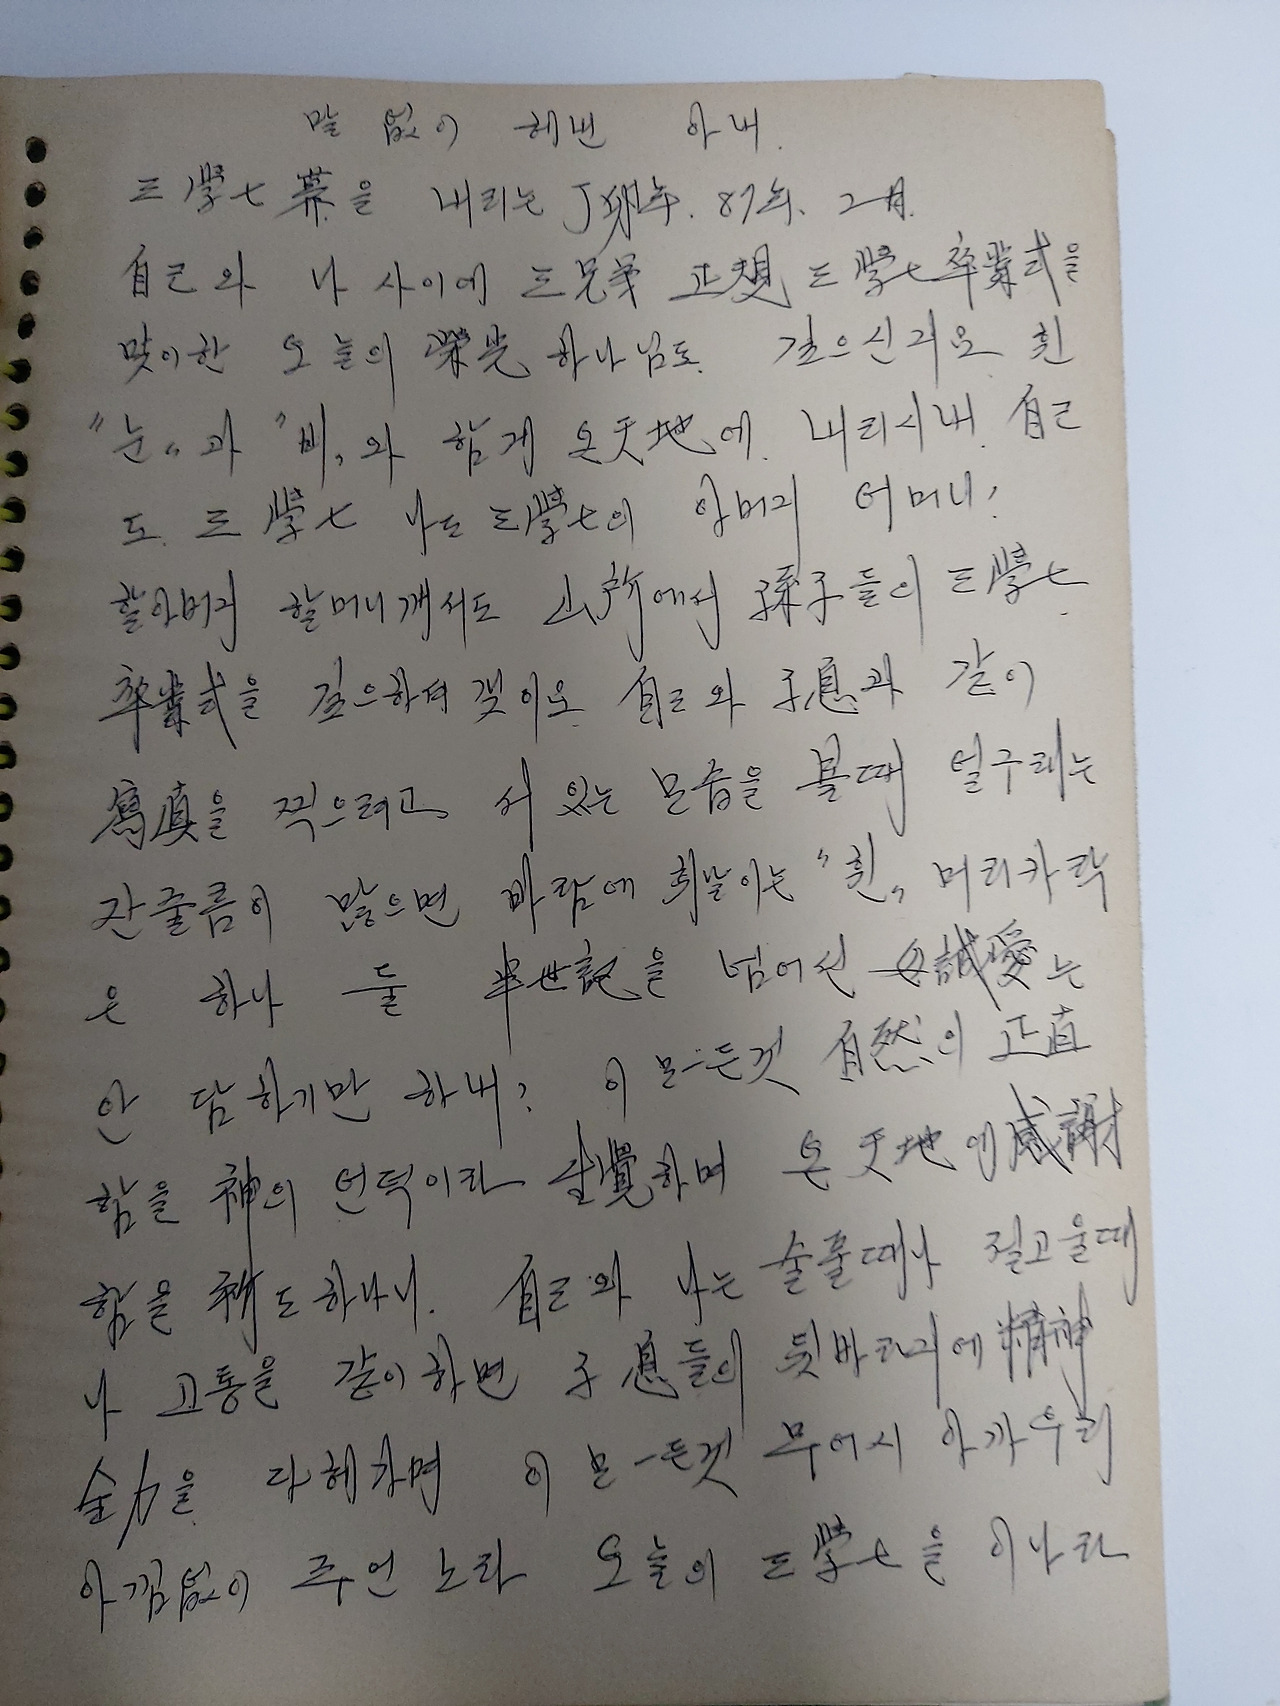 말 없이 헤낸 아내.
三學士 幕을 내리는 丁卯年. 87年. 2月.
自己와 나 사이에 三兄弟 正想 三學士 卒業式을
맞이한 오늘의 榮光 하나님도. 걸으신지요 흰
"눈"과 "비"와 함게 온天地에. 내리시내. 自己
도. 三學士 나도 三學士의 압버지 어머니,
할아버지 할머니깨서도 山所에서 孫子들의 三學士
卒業式을 걸으하셔겟이요. 自己와 子息과 같이
寫眞을 찍으려고 서 있는 모습을 볼때 얼구레는
잔줄름이 많으면 바람에 휘날이는 "흰" 머리카락
은 하나 둘 半世記을 넘어선 母誠愛는
안 담하기만 하내, 이 모-든것 自然의 正直
함을 神의 언덕이라 覺하며 온 天地에 感謝
함을 祈도하나니. 自己와 나는 슬플때나 질고울때
나 고통을 같이하면 子息들의 뒷바라지에 精神
全力을 다헤가며 이 모-든것 무어시 아까우리
아낌없이 주언노라 오늘의 三學士을 이나라